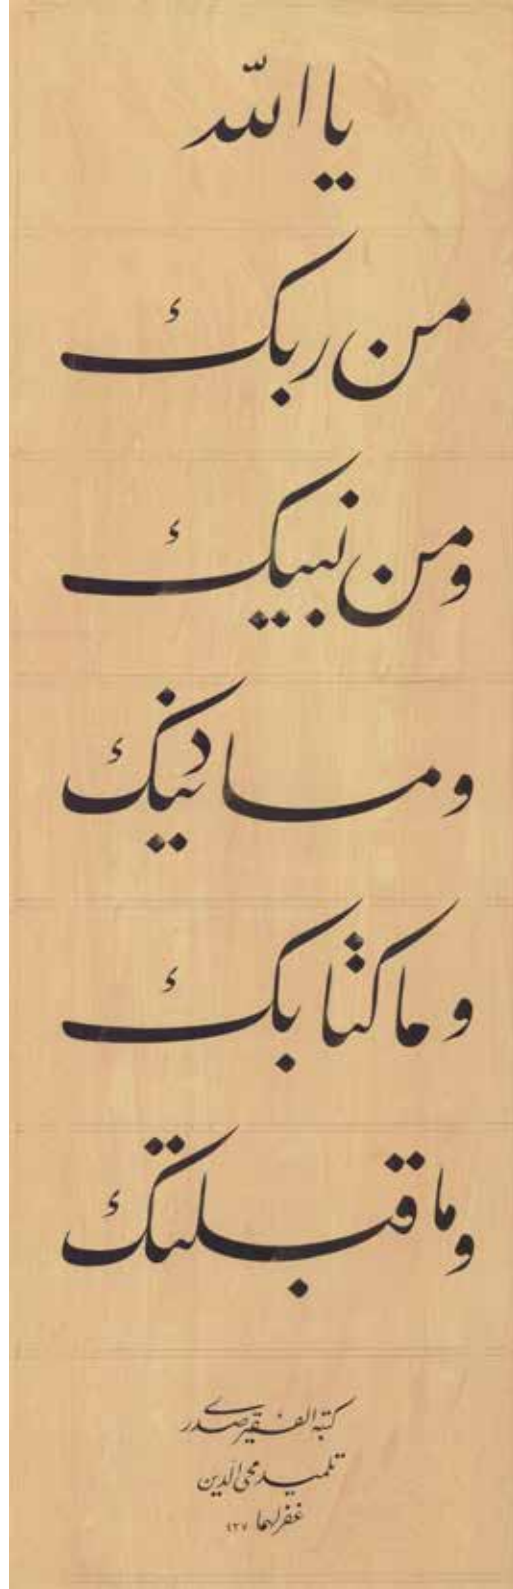 يا الله
من ربك
ومن نبيك
وما دينك
وما كتابك
وما قبلتك
كتبه الفقير صدرى
تلميد محى الدّين
غفر لهما ٤٢٧